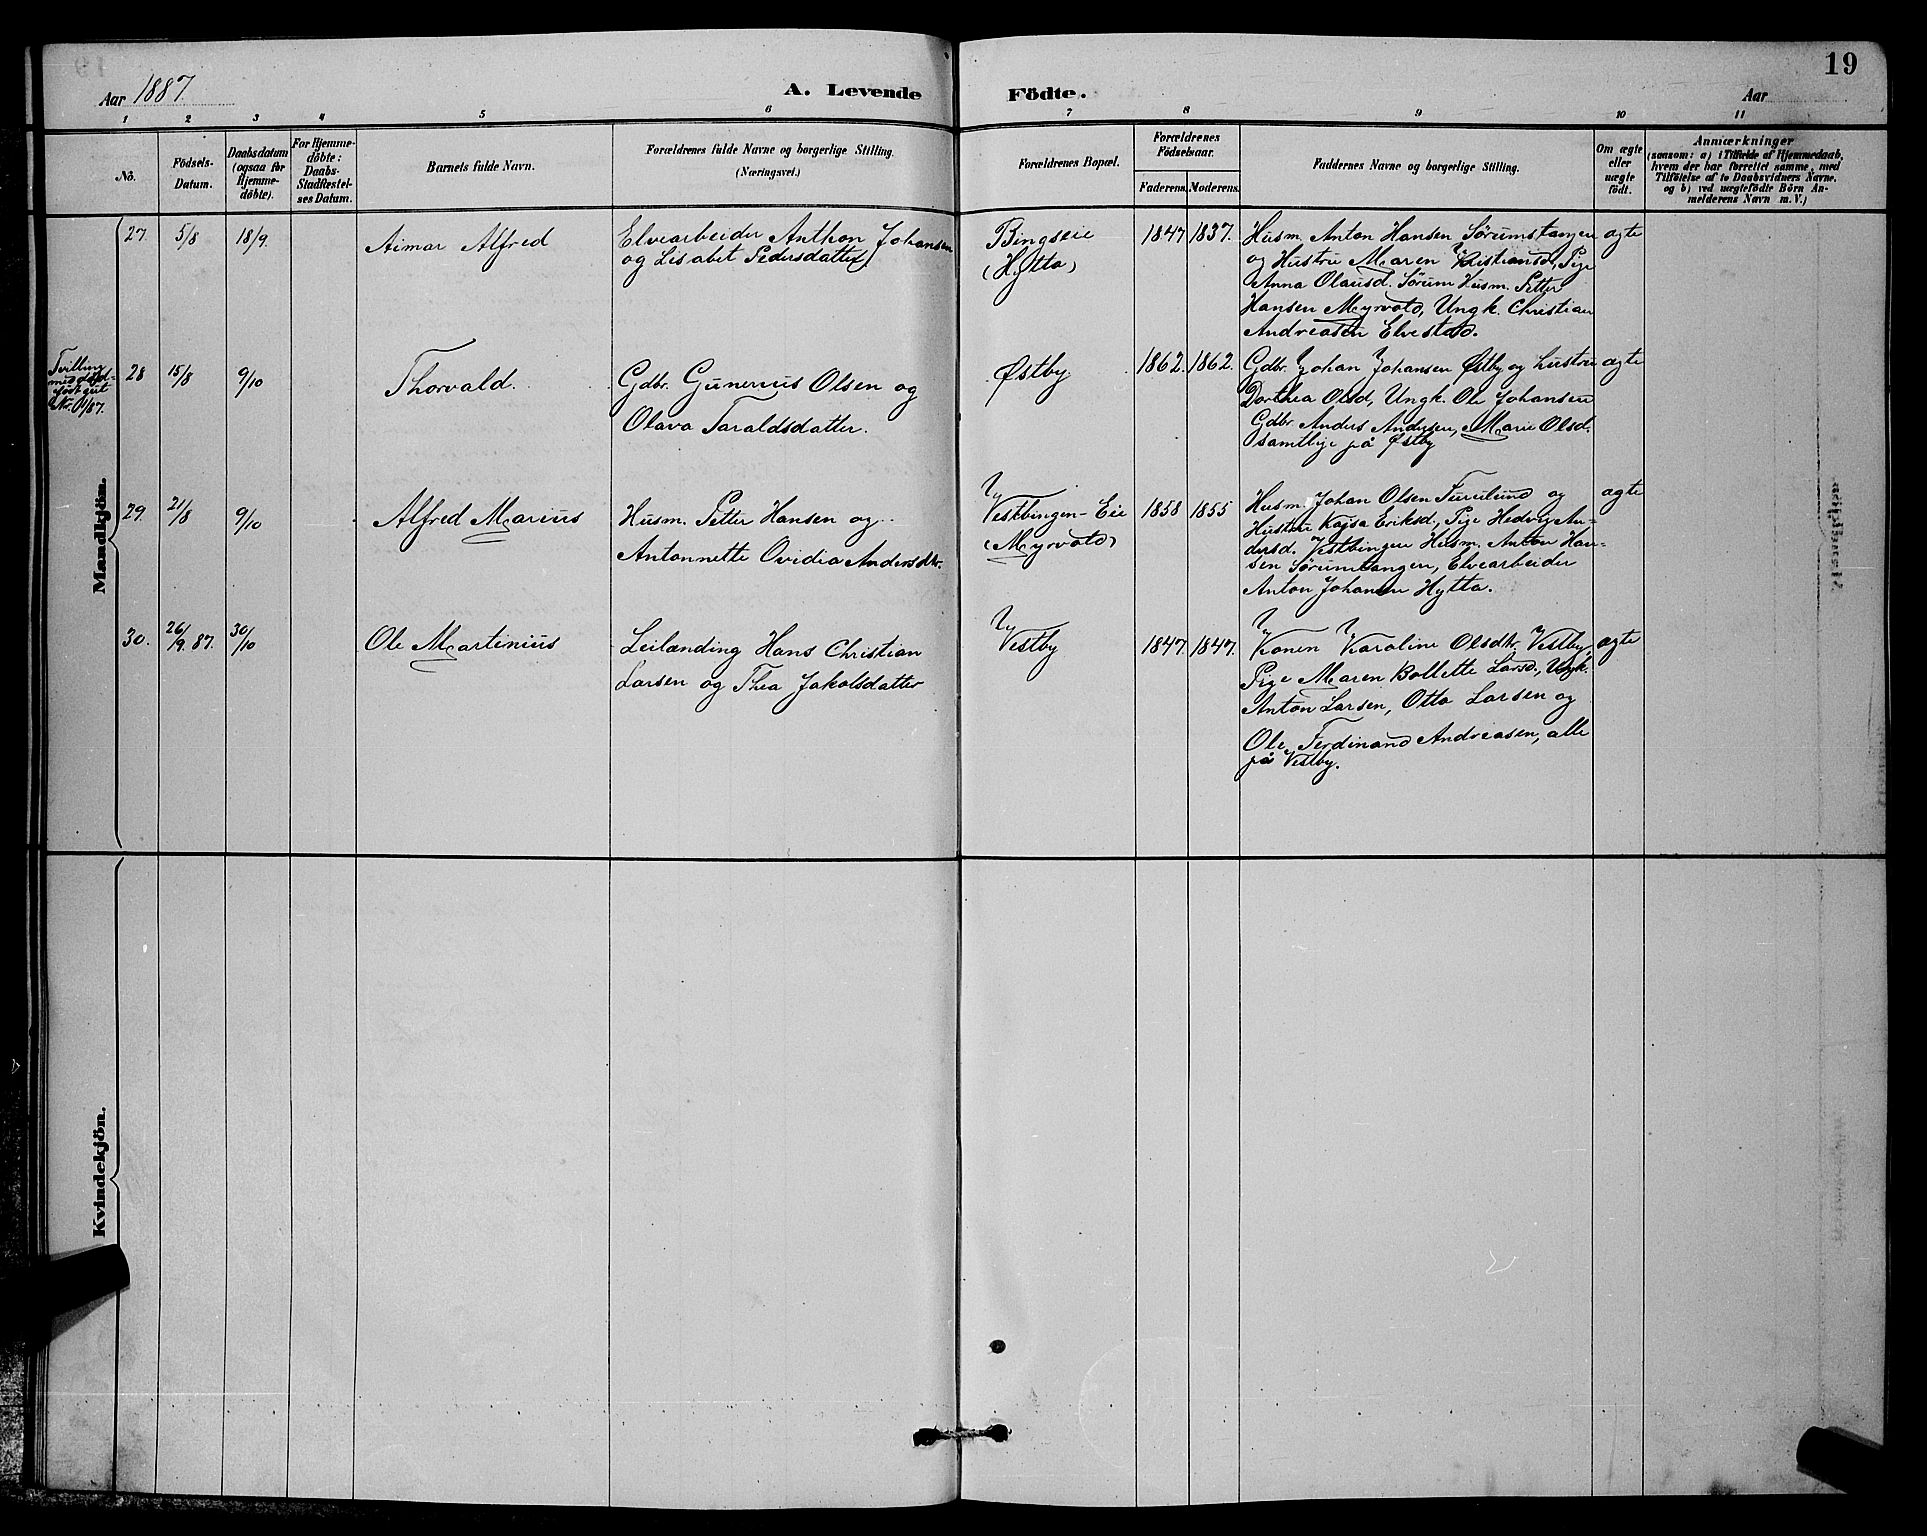 19
Aar 1887.
A. Levende Födte.
Aar
1 2 3 4 5 6 7 8 9 10 11
No.
Födsels-
Datum.
Daabsdatum
(ogsaa för
Hjemme-
döbte).
For Hjemme-
döbte:
Daabs-
Stadfæstel-
ses Datum.
Barnets fulde Navn.
Forældrenes fulde Navne og borgerlige Stilling.
(Næringsvei.)
Forældrenes Bopæl.
Forældrenes
Födselsaar.
Faderens. Moderens.
Faddernes Navne og borgerlige Stilling.
Om ægte
eller
uægte
födt.
Anmærkninger
(saasom: a) i Tilfælde af Hjemmedaab,
hvem der har forrettet samme, med
Tilföielse af to Daabsvidners Navne,
og b) ved uægtefödte Börn An-
melderens Navn m. V.)
Mandkjön.
27. 5/8 18/9.
Aimar Alfred
Elvearbeider Anthon Johansen
og Lisabet Pedersdatter
Bingseie
(Hytta)
1847 1837.
Husm. Anton Hansen Sørumstangen
og Hustru Maren Kristiansd., Pige
Anna Olausd. Sørum Husm. Petter
Hansen Myrvold, Ungk. Christian
Andreasen Elvestad.
agte
Tvilling
med
Nr. 01/87.
28 15/8 9/10
Thorvald.
Gdbr. Gunerius Olsen og
Olava Taraldsdatter.
Østby
1862. 1862.
Gdbr. Johan Johansen Østby og hustru
Dorthea Olsd, Ungk. Ole Johansen
Gdbr. Anders Andersen, Marie Olsd.
samtlige på Østby
agte
29. 21/8 9/10
Alfred Marius
Husm. Petter Hansen og
Antonnette Ovidia Andersdtr.
Vestbingen-Eie
(Myrvold)
1858 1855
Husm. Johan Olsen Furulund og
Hustru Kajsa Eriksd., Pige Hedvig An-
dersd. Vestbingen Husm. Anton Han-
sen Sørumtangen, Elvearbeider
Anton Johansen Hytta.
agte
30. 26/9. 87. 30/10
Ole Martinius
Leilænding Hans Christian
Larsen og Thea Jakobsdatter
Vestby
1847. 1847.
Konen Karoline Olsdtr. Vestby,
Pige Maren Bollette Larsd., Ungk.
Anton Larsen, Otto Larsen og
Ole Ferdinand Andreasen, alle
på Vestby.
agte
Kvindekjön.